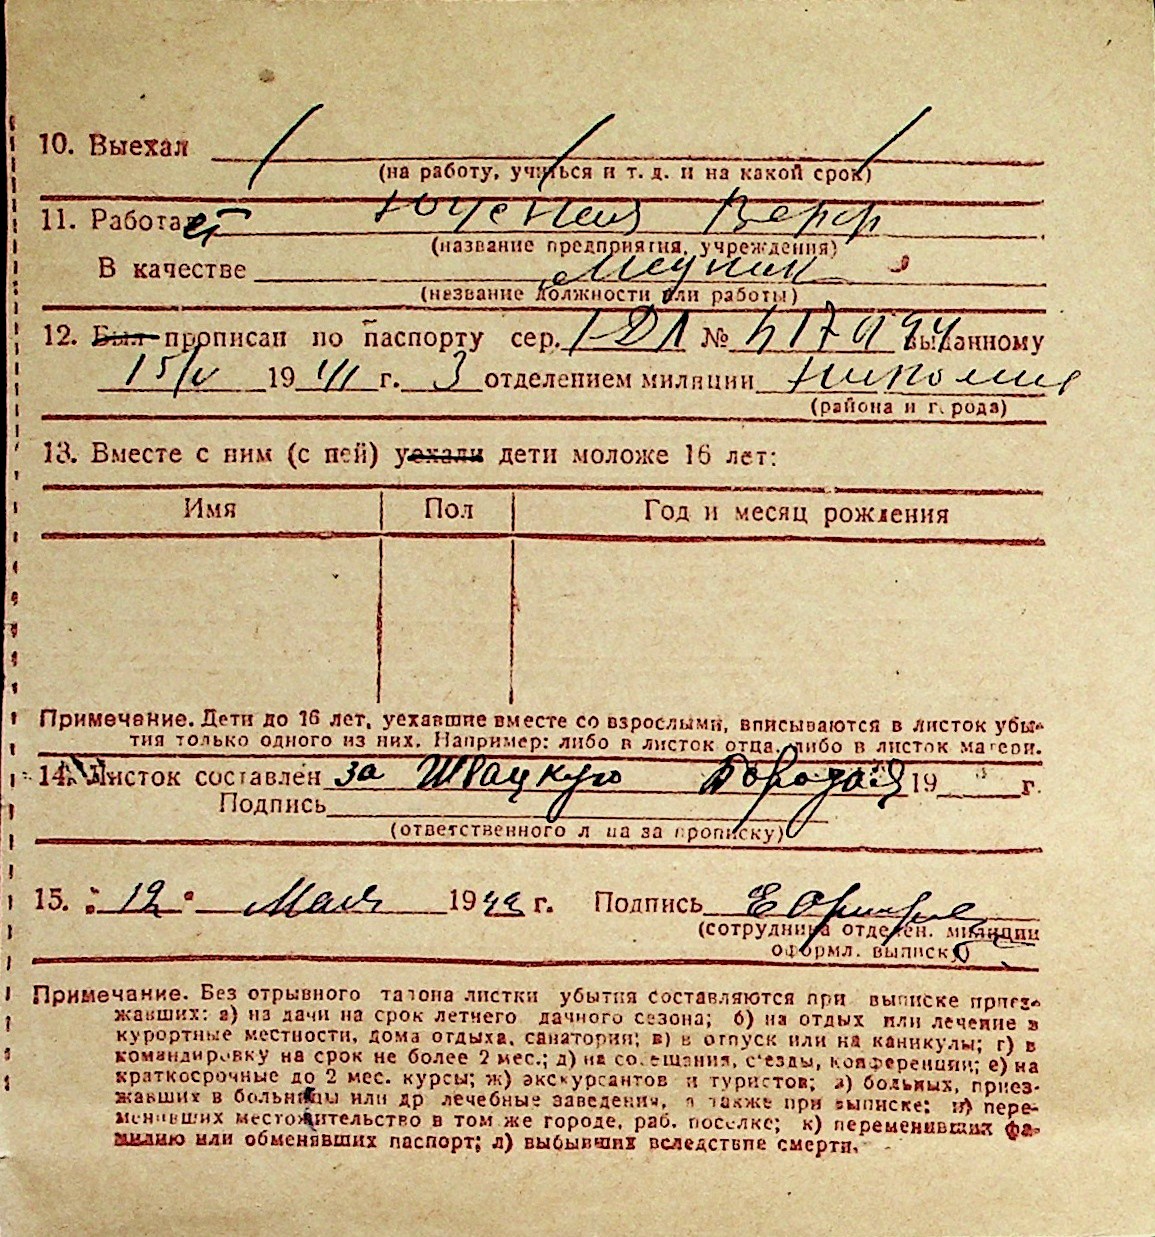 10. Выехал
(на работу, учиться и т. д. и на какой срок)
11. Работает
(название предприятия, учреждения)
В качестве
(название должности или работы)
12. Был прописан по паспорту сер. № выданному
15/V 19 41 г. 3 отделением милиции
(района и города)
13. Вместе с ним (с ней) уехали дети моложе 16 лет:
Имя Пол Год и месяц рождения
Примечание. Дети до 16 лет, уехавшие вместе со взрослыми, вписываются в листок убы-
тия только одного из них. Например: либо в листок отца, либо в листок матери.
14. Листок составлен за Швацкую 19 г.
Подпись
(ответственного лица за прописку)
15. „12" Мая 19 г. Подпись
(сотрудника отделен. милиции
оформл. выписку)
Примечание. Без отрывного талона листки убытия составляются при выписке приез-
жавших: а) на дачи на срок летнего дачного сезона; б) на отдых или лечение в
курортные местности, дома отдыха, санатории; в) в отпуск или на каникулы; г) в
командировку на срок не более 2 мес.; д) на совещания, с'езды, конференции; е) на
краткосрочные до 2 мес. курсы; ж) экскурсантов и туристов; з) больных, приез-
жавших в больницы или др лечебные заведения, а также при выписке: и) пере-
менивших местожительство в том же городе, раб. поселке; к) переменивших фа-
милию или обменявших паспорт; л) выбывших вследствие смерти.